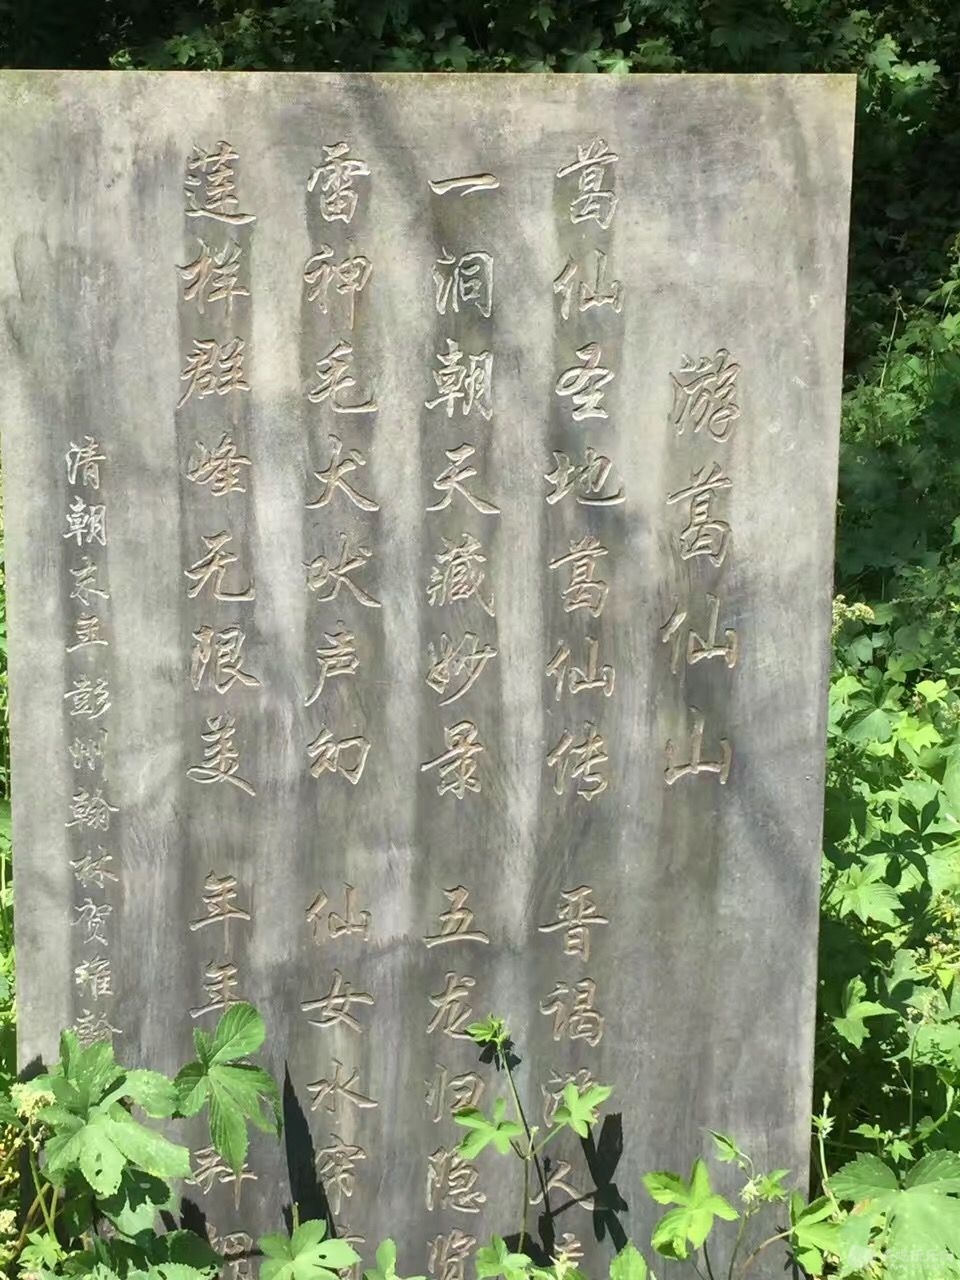 游葛仙山
葛仙圣地葛仙传 晋谒游人
一洞朝天藏妙景 五龙归隐览
雷神毛犬吠声幻 仙女水帘
莲样群峰无限美 年年
清朝末年彭州翰林贺维翰